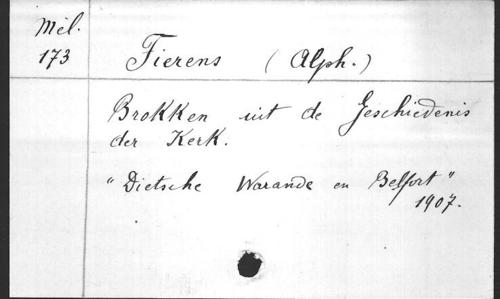 Mél.
173
Fierens (Alph.)
Brokken uit de Geschiedenis
der Kerk.
"Dietsche Warande en Belfort"
1907.